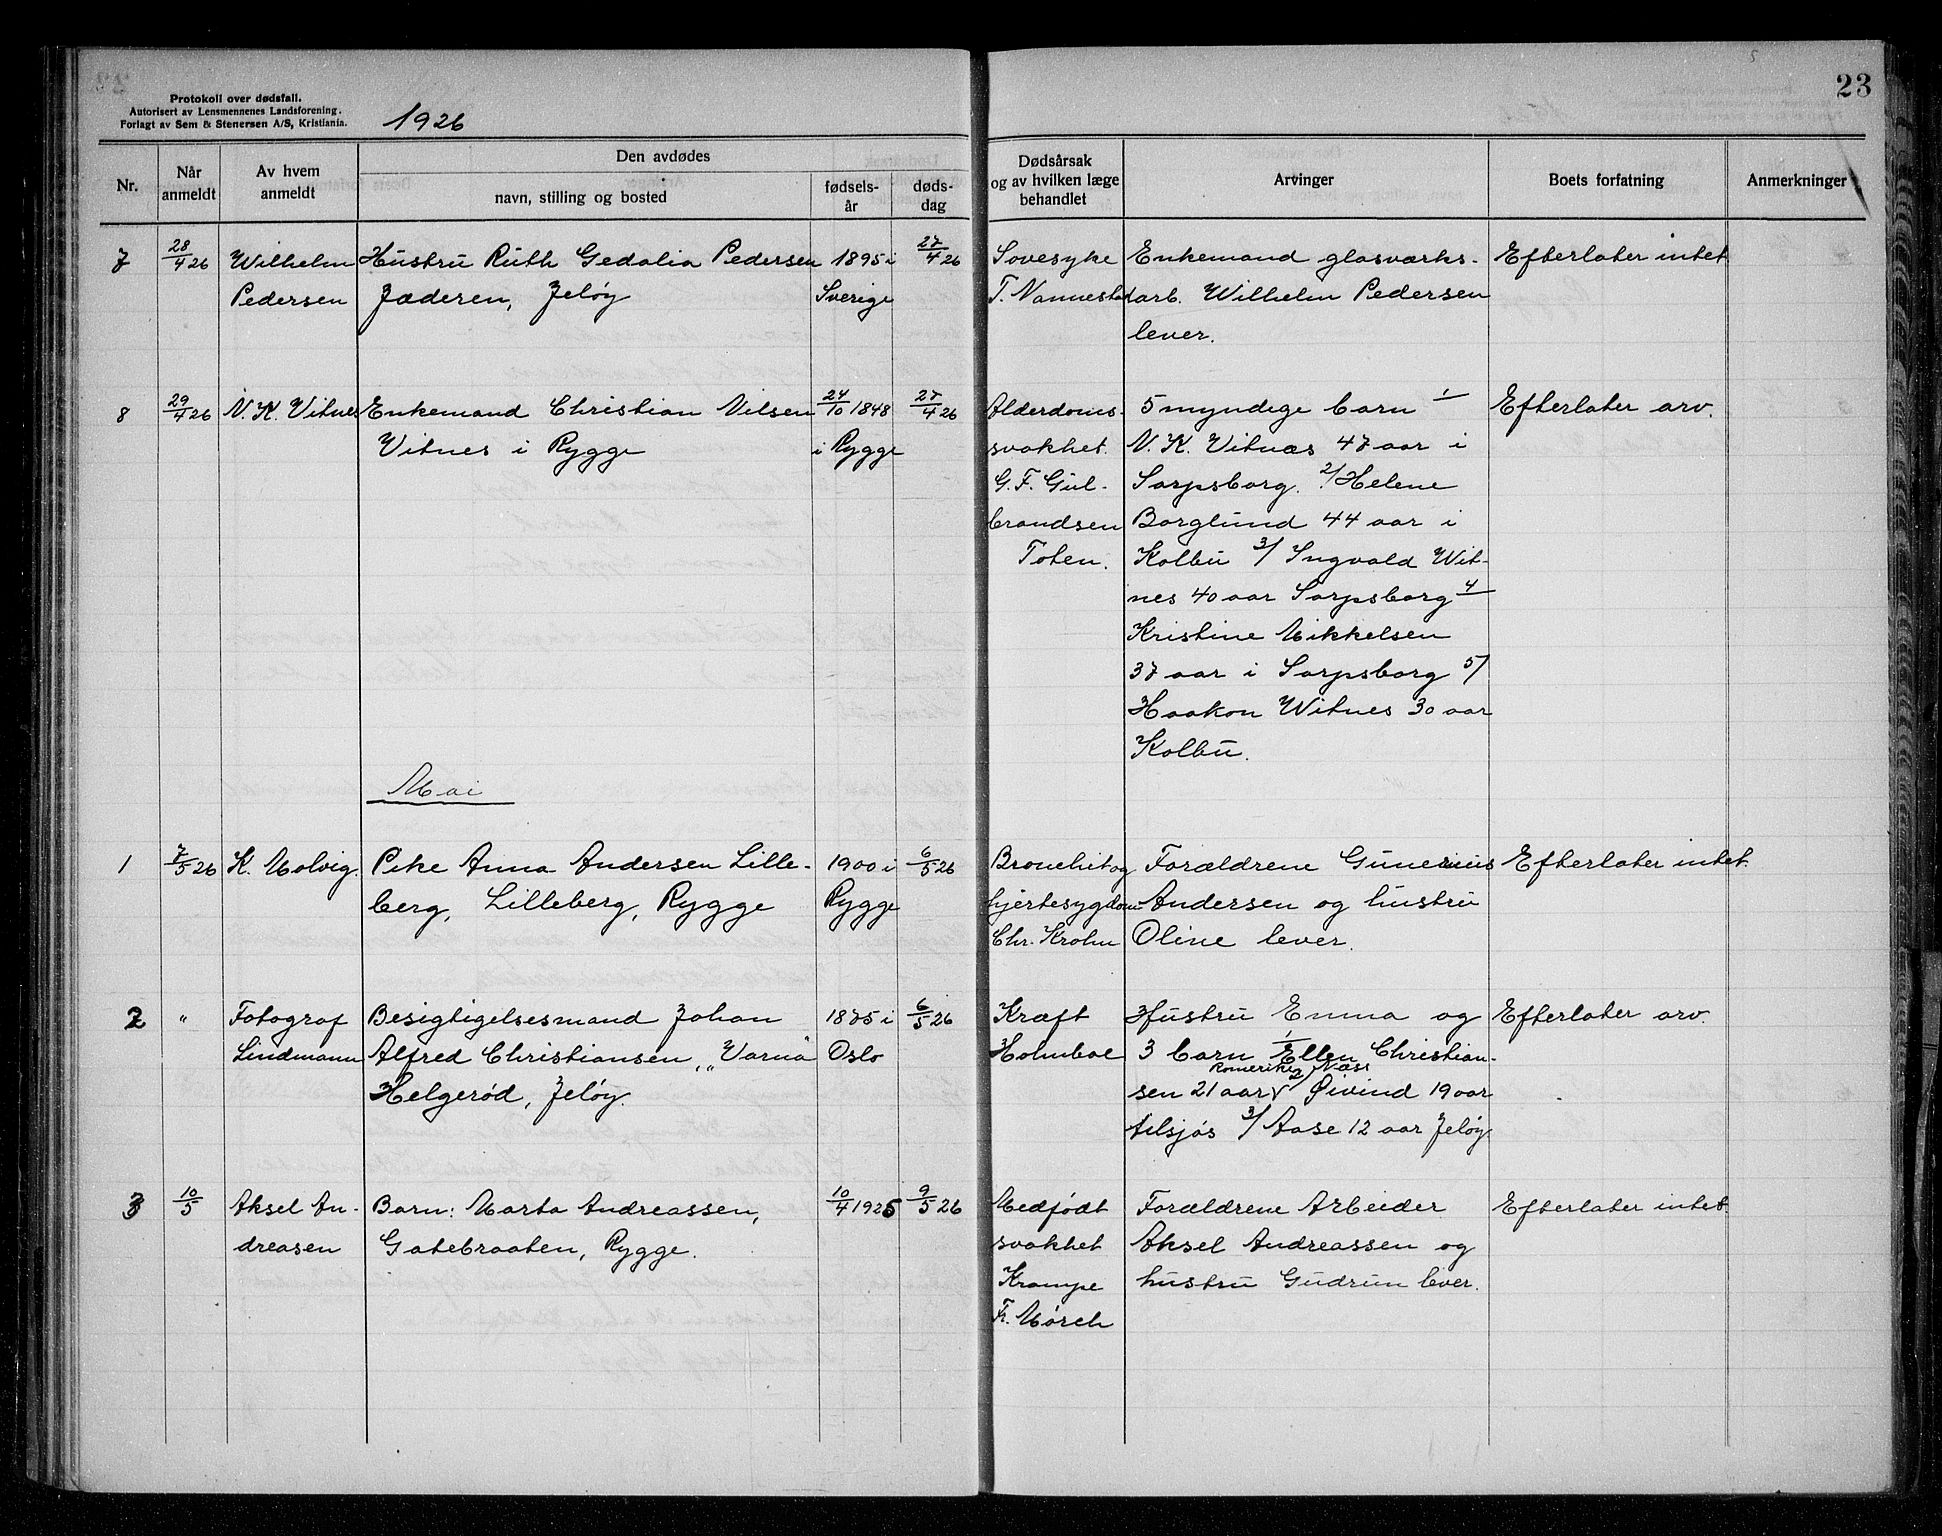 Protokoll over dødsfall.
Autorisert av Lensmennenes Landsforening.
Forlagt av Sem & Stenersen A/S, Kristiania.
1926
23
Nr.
Når anmeldt
Av hvem anmeldt
Den avdødes
navn, stilling og bosted
fødsels-år
døds-dag
Dødsårsak og av hvilken læge behandlet
Arvinger
Boets forfatning
Anmerkninger
7
28/4 26
Wilhelm
Pedersen
Hustru Ruth Gedalia Pedersen
Jæderen, Jeløy
1895 i
Sverige
27/4 26
Sovesyke
T. Nannestad
Enkemand glasværks-
arb. Wilhelm Pedersen
lever.
Efterlater intet
8
29/4 26
N. K. Vitnes
Enkemand Christian Nilsen
Vitnes i Rygge
24/10 1848
i Rygge
27/4 26
Alderdoms-
svakhet.
G. F. Gul-
brandsen
Toten.
5 myndige barn 1/
N. K. Vitnæs 47 aar i
Sarpsborg. 2/ Helene
Borglund 44 aar i
Kolbu 3/ Ingvald Wit-
nes 40 aar Sarpsborg 4/
Kristine Mikkelsen
37 aar i Sarpsborg 5/
Haakon Witnes 30 aar
Kolbu.
Efterlater arv.
Mai
1
7/5 26
K. Molvig.
Pike Anna Andersen Lille-
berg, Lilleberg, Rygge
1900 i
Rygge
6/5 26
Bronchit og
hjertesygdom
Chr. Krohn
Forældrene Gunerius
Andersen og hustru
Oline lever.
Efterlater intet.
2
"
Fotograf
Lindmann
Besigtigelsesmand Johan
Alfred Christiansen „Varnå"
Helgerød, Jeløy.
1875 i
Oslo
6/5 26
Kræft
Holmboe
Hustru Emma og
3 barn 1/ Ellen Christian-
Romerike Næs
sen 21 aar 2/ Øivind 19 aar
tilsjøs 3/ Aase 12 aar Jeløy.
Efterlater arv.
3
10/5
Aksel An-
dreasen
Barn: Marta Andreassen,
Gatebraaten, Rygge.
10/4 1926
9/5 26
Medfødt
svakhet
Krampe
Fr. Mørch
Forældrene Arbeider
Aksel Andreassen og
hustru Gudrun lever.
Efterlater intet.